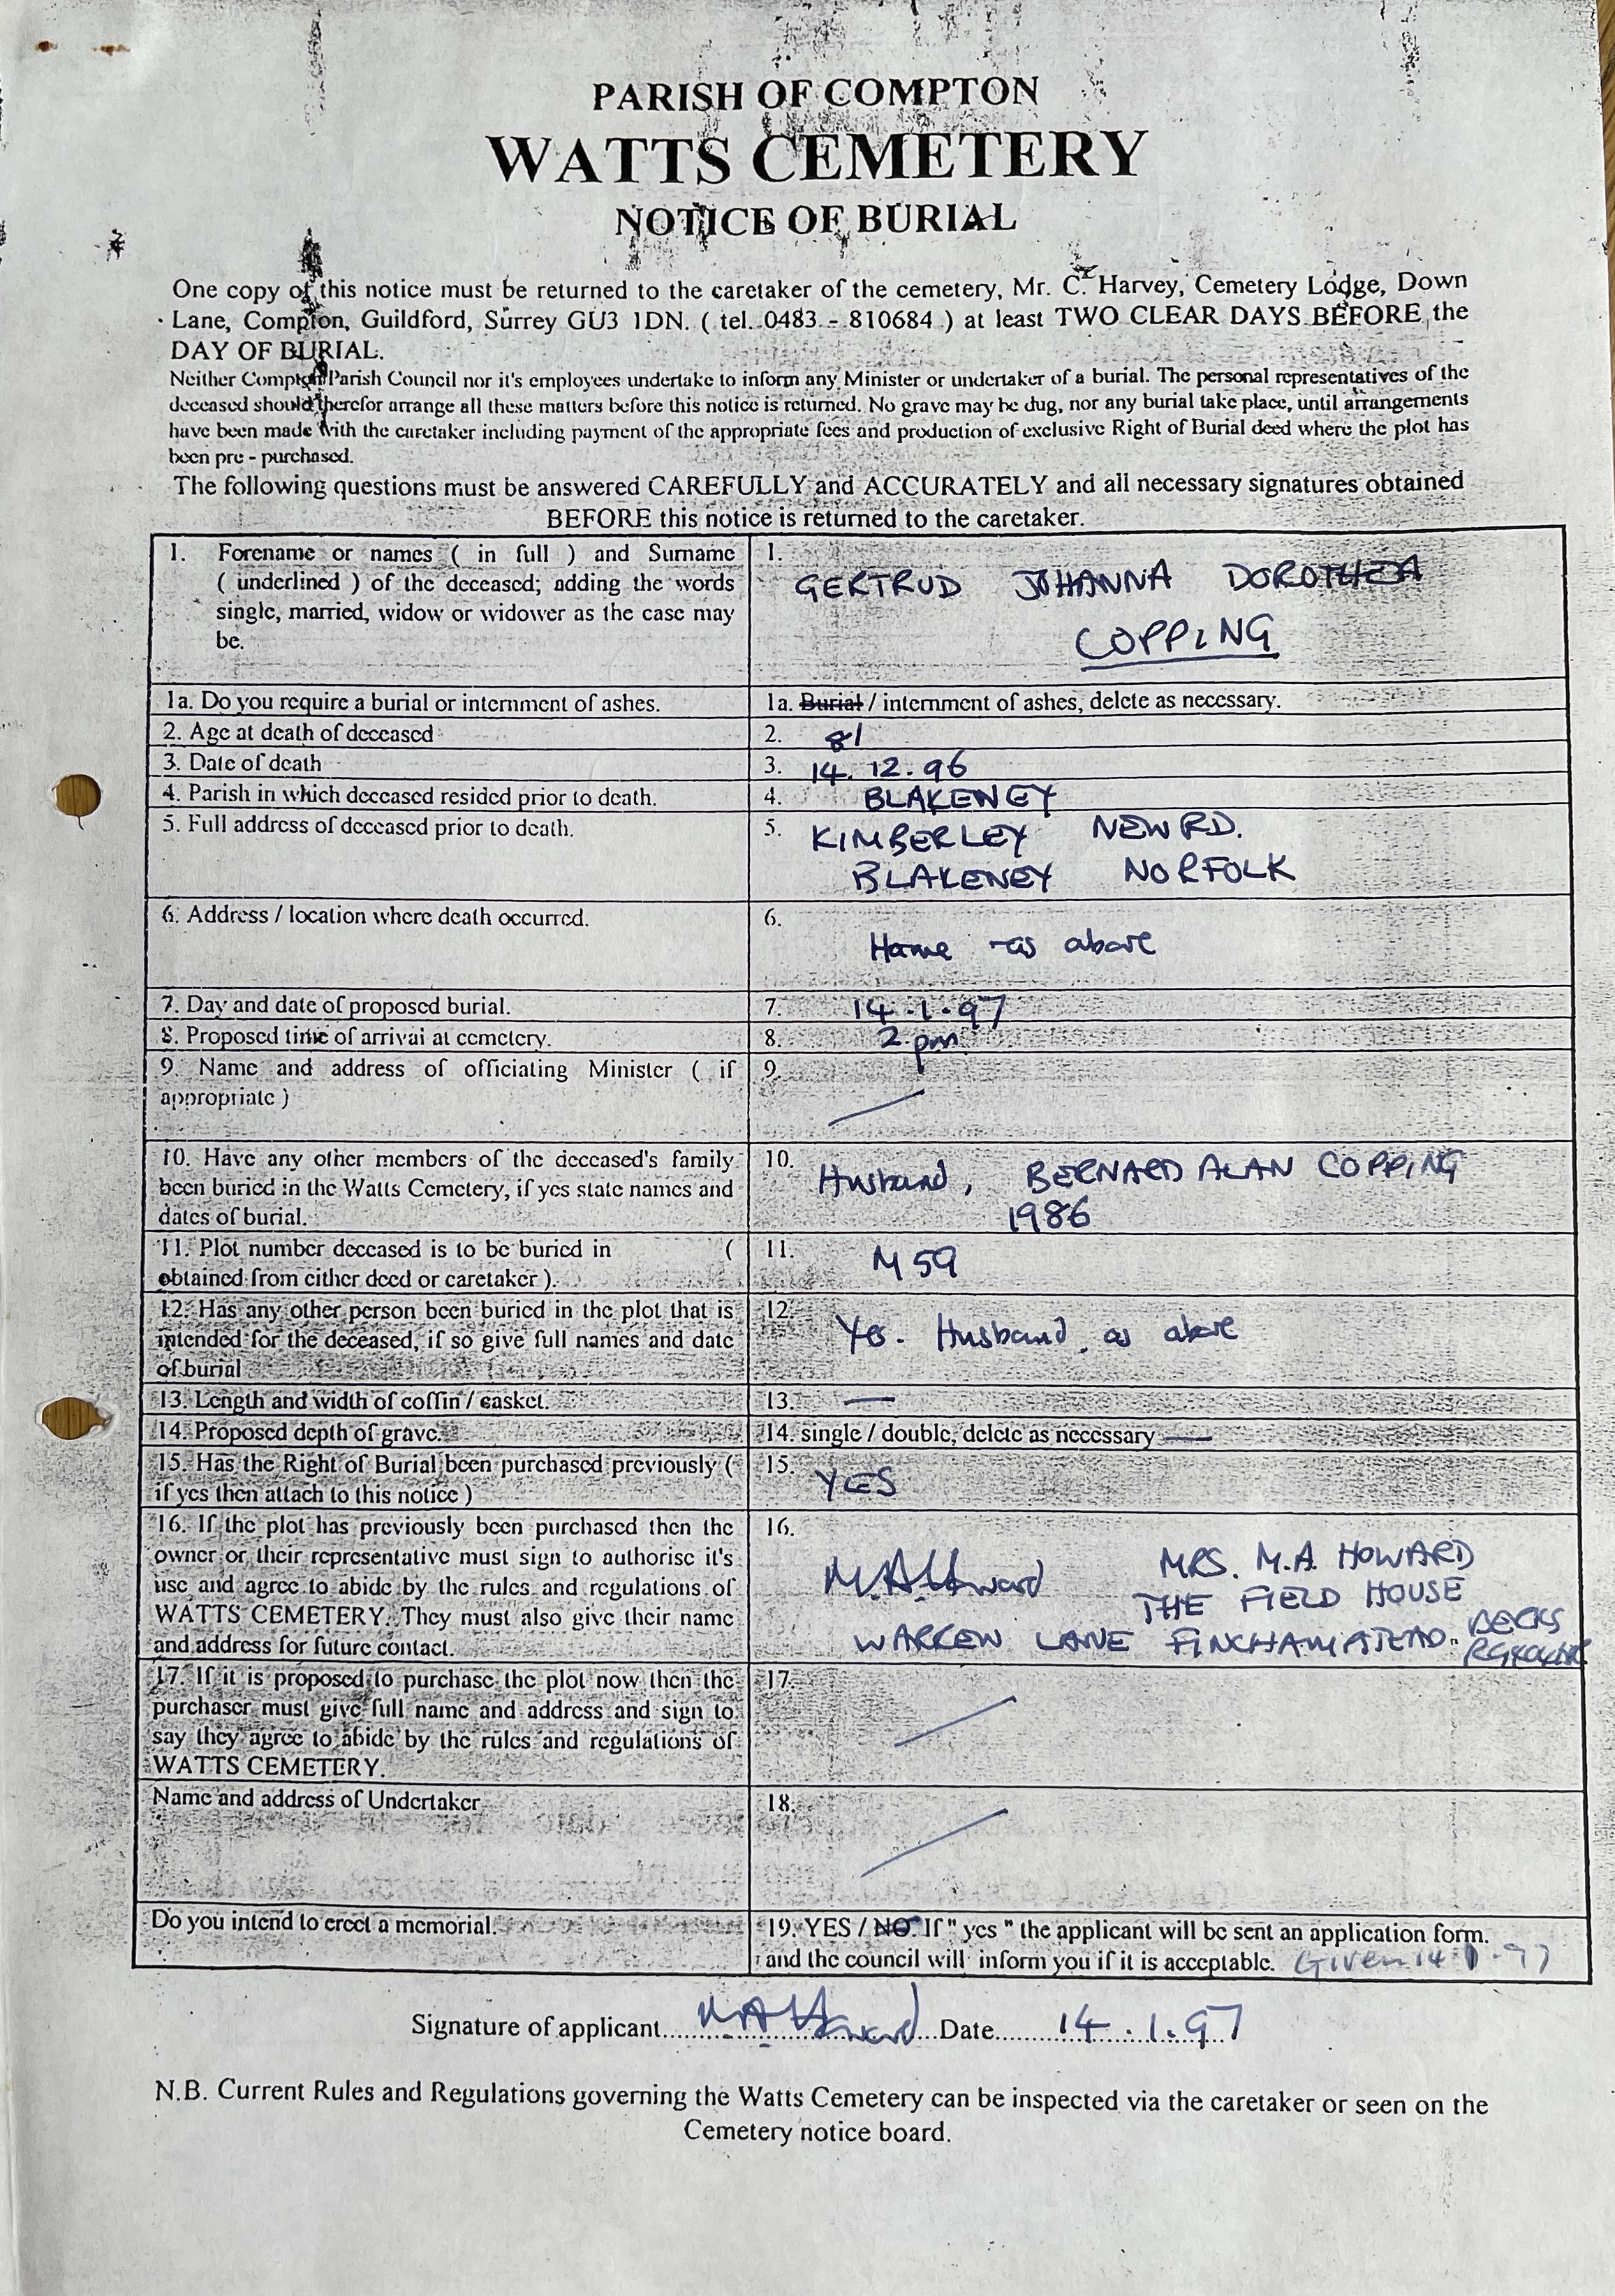 PARISH OF COMPTON
WATTS CEMETERY
NOTICE OF BURIAL
One copy of this notice must be returned to the caretaker of the cemetery, Mr. C. Harvey, Cemetery Lodge, Down
Lane, Compton, Guildford, Surrey GU3 1DN. ( tel. 0483 - 810684 ) at least TWO CLEAR DAYS BEFORE the
DAY OF BURIAL.
Neither Compton Parish Council nor it's employees undertake to inform any Minister or undertaker of a burial. The personal representatives of the
deceased should therefor arrange all these matters before this notice is returned. No grave may be dug, nor any burial take place, until arrangements
have been made with the caretaker including payment of the appropriate fees and production of exclusive Right of Burial deed where the plot has
been pre - purchased.
The following questions must be answered CAREFULLY and ACCURATELY and all necessary signatures obtained
BEFORE this notice is returned to the caretaker.
1. Forename or names ( in full ) and Surname
( underlined ) of the deceased; adding the words
single, married, widow or widower as the case may
be.
1.
GERTRUD JOHANNA DOROTHEA
COPPING
1a. Do you require a burial or internment of ashes.
1a. Burial / internment of ashes, delete as necessary.
2. Age at death of deceased
2. 81
3. Date of death
3. 14.12.96
4. Parish in which deceased resided prior to death.
4. BLAKENEY
5. Full address of deceased prior to death.
5. KIMBERLEY NEW RD.
BLAKENEY NORFOLK
6. Address / location where death occurred.
6.
Home - as above
7. Day and date of proposed burial.
7. 14.1.97
8. Proposed time of arrival at cemetery.
8. 2 pm
9. Name and address of officiating Minister ( if
appropriate )
9.
10. Have any other members of the deceased's family
been buried in the Watts Cemetery, if yes state names and
dates of burial.
10. Husband, BERNARD ALAN COPPING
1986
11. Plot number deceased is to be buried in (
obtained from either deed or caretaker ).
11. M 59
12. Has any other person been buried in the plot that is
intended for the deceased, if so give full names and date
of burial
12.
Yes. Husband, as above
13. Length and width of coffin / casket.
13. —
14. Proposed depth of grave.
14. single / double, delete as necessary —
15. Has the Right of Burial been purchased previously (
if yes then attach to this notice )
15. YES
16. If the plot has previously been purchased then the
owner or their representative must sign to authorise it's
use and agree to abide by the rules and regulations of
WATTS CEMETERY. They must also give their name
and address for future contact.
16.
M.A. Howard MRS. M.A. HOWARD
THE FIELD HOUSE
WARREN LANE FINCHAMPSTEAD. BERKS
17. If it is proposed to purchase the plot now then the
purchaser must give full name and address and sign to
say they agree to abide by the rules and regulations of
WATTS CEMETERY.
17.
Name and address of Undertaker
18.
Do you intend to erect a memorial.
19. YES / NO. If " yes " the applicant will be sent an application form.
and the council will inform you if it is acceptable. Given 14.1.97
Signature of applicant M.A. Howard Date 14.1.97
N.B. Current Rules and Regulations governing the Watts Cemetery can be inspected via the caretaker or seen on the
Cemetery notice board.